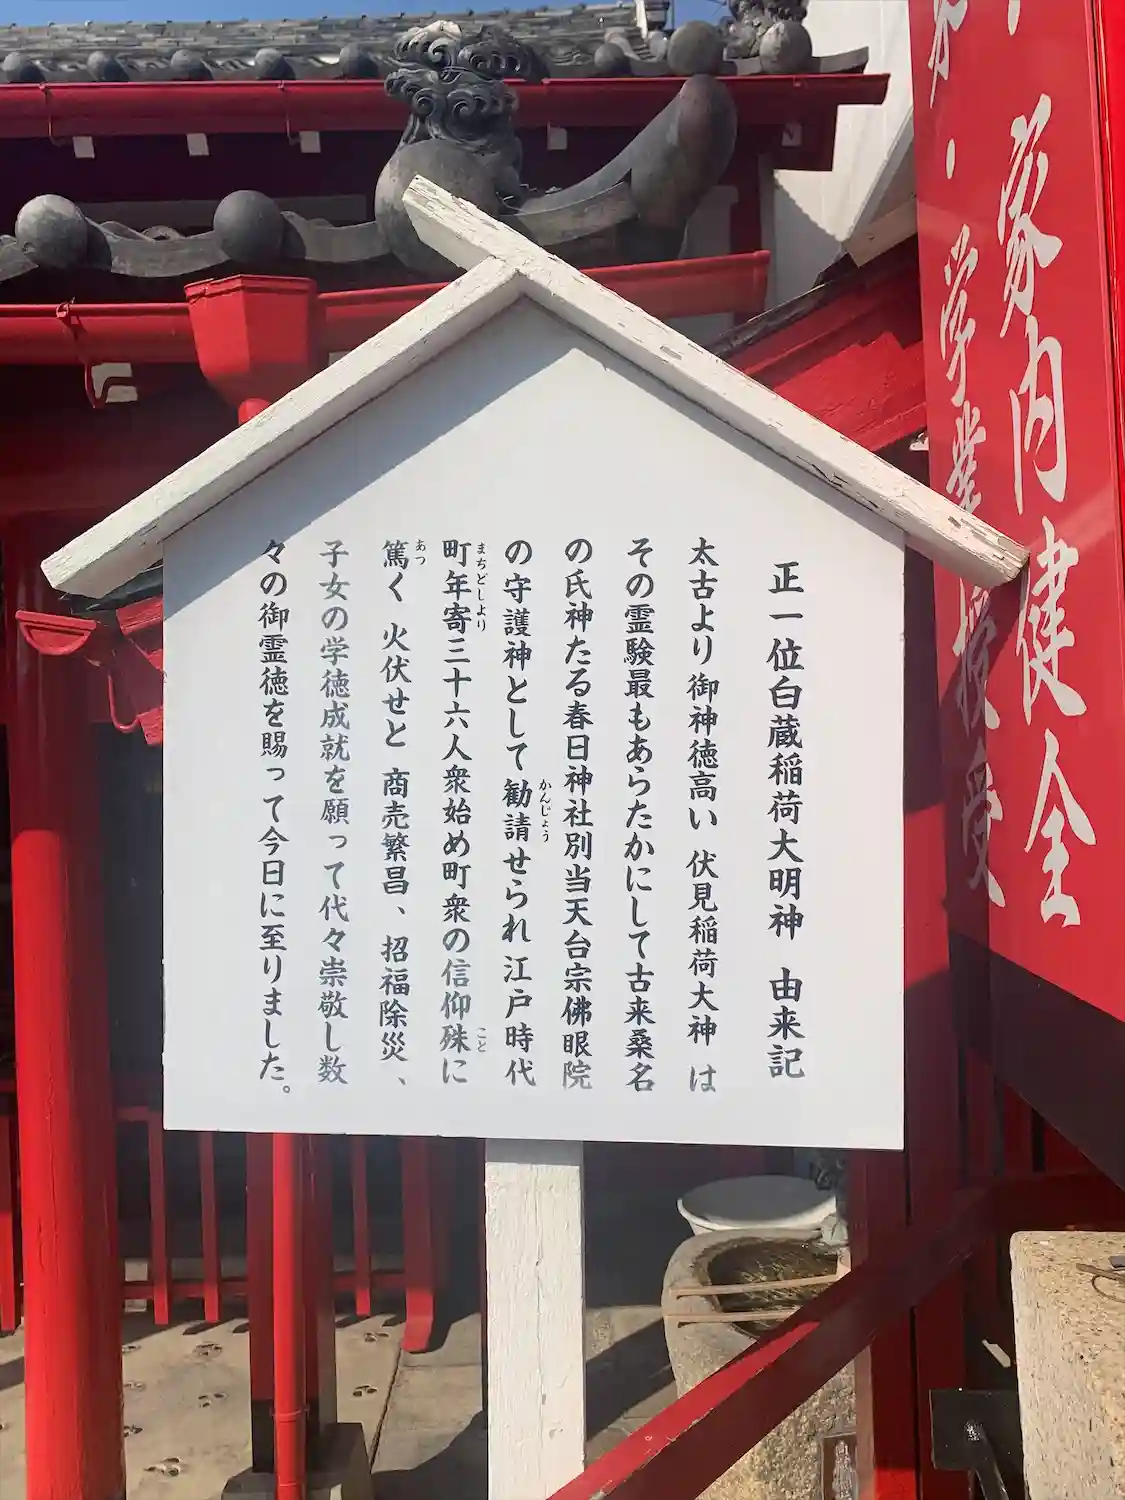 家内健全
・学業授受
正一位白蔵稲荷大明神 由来記
太古より御神徳高い 伏見稲荷大神 は
その霊験最もあらたかにして古来桑名
の氏神たる春日神社別当天台宗佛眼院
の守護神として勧請せられ江戸時代
かんじょう
町年寄三十六人衆始め町衆の信仰殊に
まちどしより
こと
篤く 火伏せと 商売繁昌、招福除災、
あつ
子女の学徳成就を願って代々崇敬し数
々の御霊徳を賜って今日に至りました。